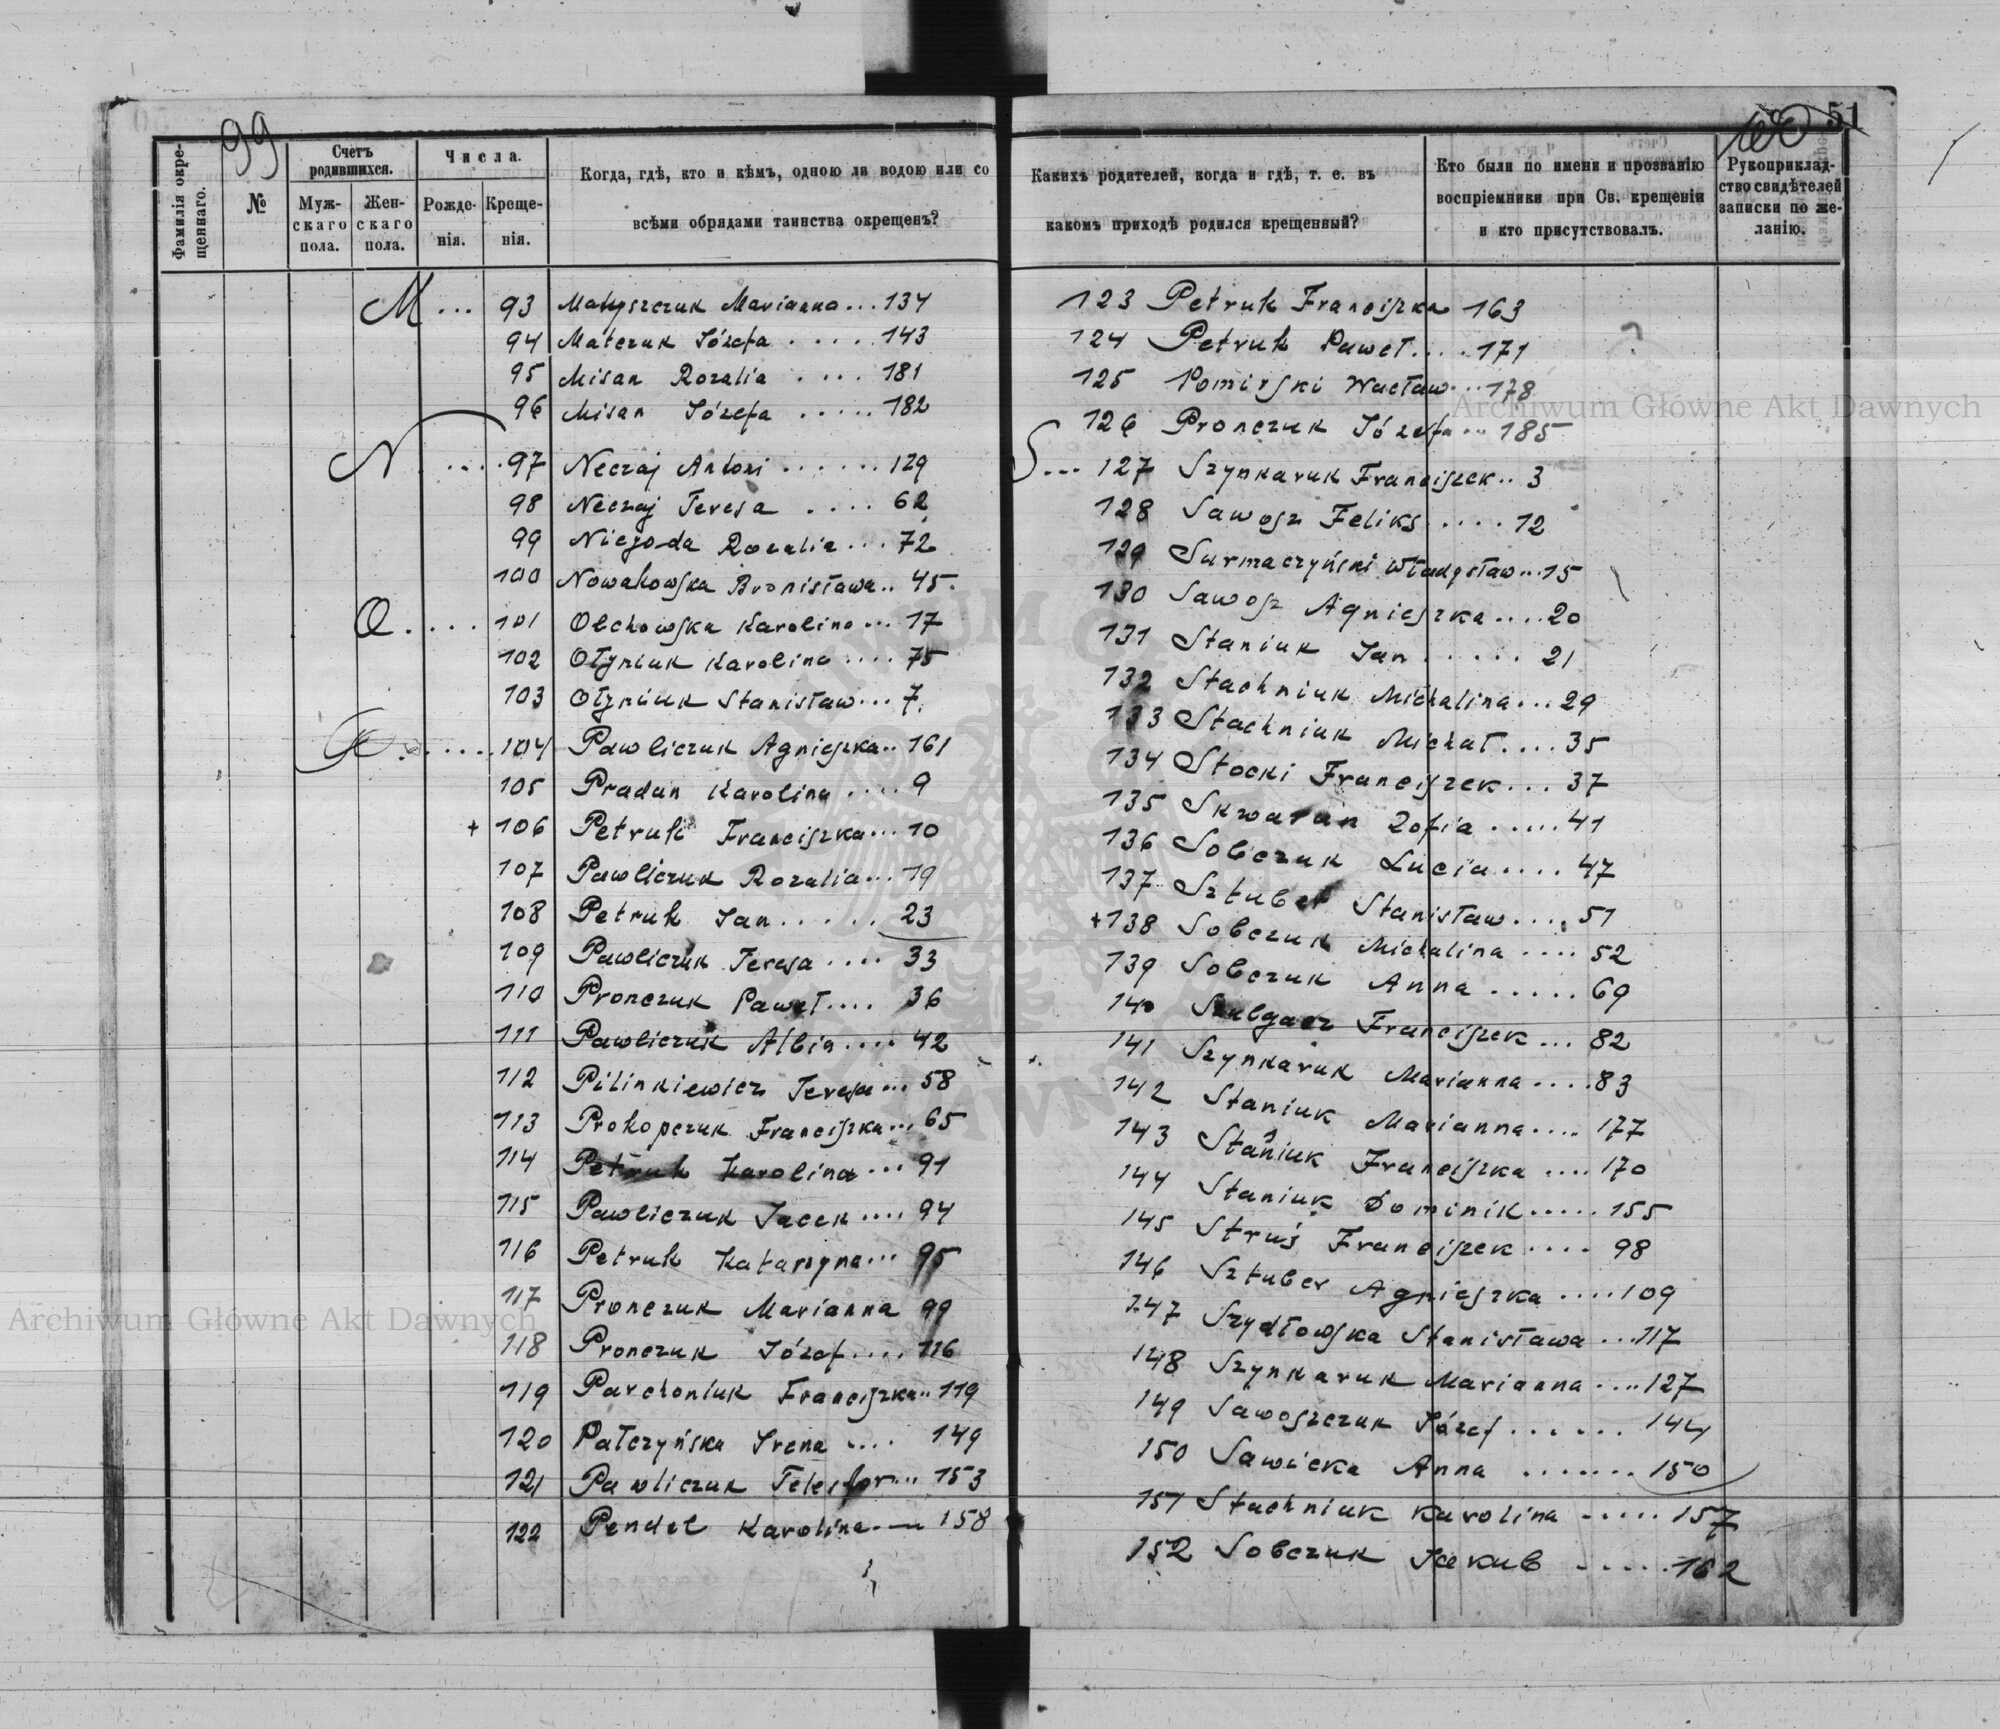 99
Фамилія окрещеннаго.
№
Счетъ родившихся.
Мужскаго пола.
Женскаго пола.
Числа.
Рожденія.
Крещенія.
Когда, гдѣ, кто и кѣмъ, одною ли водою или со
всѣми обрядами таинства окрещенъ?
M ... 93 Matyszczuk Marianna ... 134
94 Matczuk Józefa ..... 143
95 Misan Rozalia .... 181
96 Misan Józefa ..... 182
N ..... 97 Neczaj Antoni ...... 129
98 Neczaj Teresa .... 62
99 Niegoda Rozalia ... 72
100 Nowakowska Bronisława .. 45.
O .... 101 Olchowska Karolina ... 17
102 Ołyniuk Karolina .... 75
103 Ołyniuk Stanisław ... 7.
P ..... 104 Pawliczuk Agnieszka .. 161
105 Pradun Karolina .... 9
+ 106 Petruk Franciszka ... 10
107 Pawliczuk Rozalia ... 19
108 Petruk Jan ...... 23
109 Pawliczuk Teresa .... 33
110 Pronczuk Paweł .... 36
111 Pawliczuk Albin .... 42
112 Pilinkiewicz Teresa ... 58
113 Prokopczuk Franciszka ... 65
114 Petruk Karolina ... 91
115 Pawliczuk Jacek .... 94
116 Petruk Katarzyna ... 95
117 Pronczuk Marianna 99
118 Pronczuk Józef .... 116
119 Parchoniuk Franciszka .. 119
120 Pałczyńska Irena .... 149
121 Pawliczuk Telesfor ... 153
122 Pendel Karolina .— 158
100 51
Какихъ родителей, когда и гдѣ, т. е. въ
какомъ приходѣ родился крещенный?
Кто были по имени и прозванію
воспріемники при Св. крещеніи
и кто присутствовалъ.
Рукоприклад-
ство свидѣтелей
записки по же-
ланію.
123 Petruk Franciszka 163
124 Petruk Paweł .... 171
125 Pomirski Wacław ... 178
126 Pronczuk Józefa ... 185
S ... 127 Szynkaruk Franciszek .. 3
128 Sawosz Feliks .... 12
129 Surmaczyński Władysław ... 15
130 Sawosz Agnieszka .... 20
131 Staniuk Jan ...... 21
132 Stachniuk Michalina ... 29
133 Stachniuk Michał .... 35
134 Stocki Franciszek ... 37
135 Skwarun Zofia ..... 41
136 Sobczuk Lucia .... 47
137 Sztuber Stanisław .... 51
+ 138 Sobczuk Michalina .... 52
139 Sobczuk Anna ..... 69
140 Szulgacz Franciszek ... 82
141 Szynkaruk Marianna .... 83
142 Staniuk Marianna .... 177
143 Staniuk Franciszka .... 170
144 Staniuk Dominik ..... 155
145 Struś Franciszek .... 98
146 Sztuber Agnieszka .... 109
147 Szydłowska Stanisława ... 117
148 Szynkaruk Marianna .... 127
149 Sawoszczuk Józef ...... 144
150 Sawicka Anna ....... 150
151 Stachniuk Karolina ..... 157
152 Sobczuk Jakub ..... 162
Archiwum Główne Akt Dawnych
Archiwum Główne Akt Dawnych